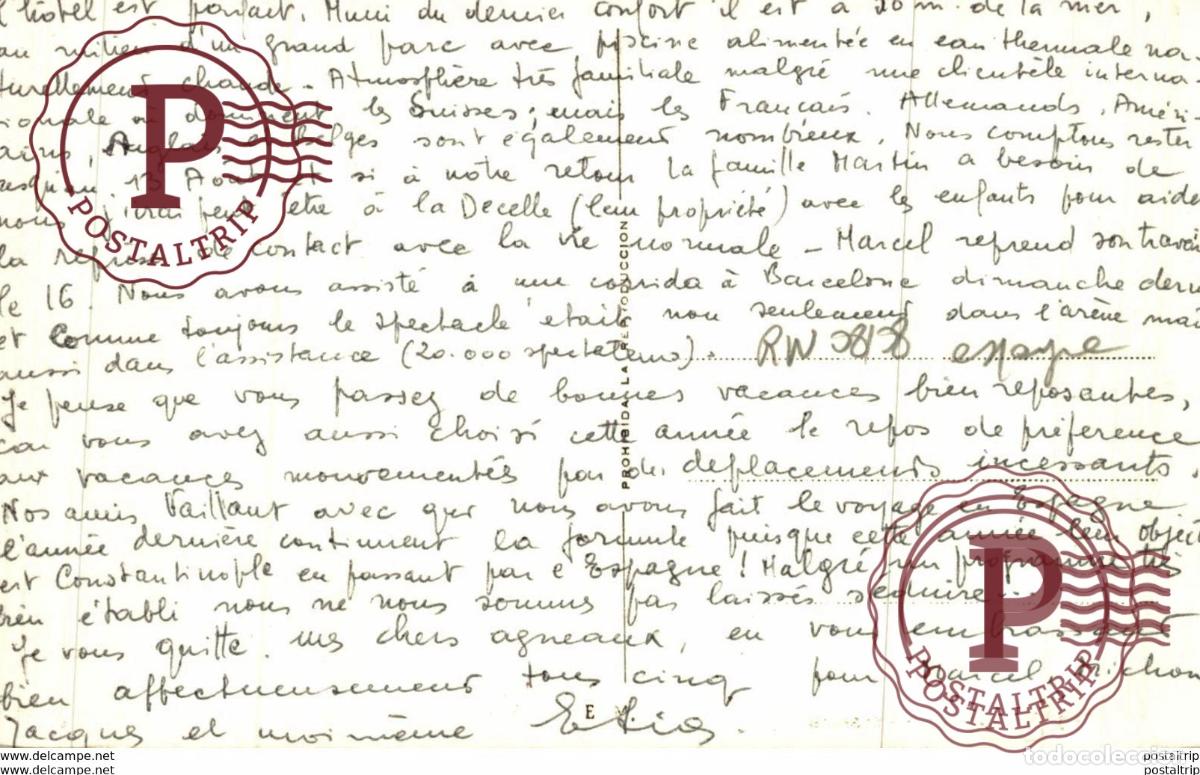 l'hôtel est parfait. Muni du dernier confort il est à 20 m. de la mer,
au milieu d'un grand parc avec piscine alimentée en eau thermale na-
turellement chaude. Atmosphère très familiale malgré une clientèle interna-
tionale où dominent les Suisses; mais les Français. Allemands, Améri-
cains, Anglais, Belges sont également nombreux. Nous comptons rester
jusqu'au 13 Août et si à notre retour la famille Martin a besoin de
nous j'irai peut être à la Decelle (leur propriété) avec les enfants pour aider
la reprise de contact avec la vie normale - Marcel reprend son travail
le 16. Nous avons assisté à une corrida à Barcelone dimanche dern
et comme toujours le spectacle était non seulement dans l'arène mais
aussi dans l'assistance (20.000 spectateurs).
RW 3838 espagne
Je pense que vous passez de bonnes vacances bien reposantes,
car vous avez aussi choisi cette année le repos de préférence
aux vacances mouvementées par des déplacements incessants.
Nos amis Vaillant avec qui nous avons fait le voyage en Espagne
l'année dernière continuent la formule puisque cette année leur objectif
est Constantinople en passant par l'Espagne! Malgré un programme très
bien établi nous ne nous sommes pas laissés séduire.
Je vous quitte mes chers agneaux, en vous embrassant
bien affectueusement tous cinq pour Marcel Michou
Jacques et moi même
PROHIBIDA LA REPRODUCCION
E
P
POSTALTRIP
P
POSTALTRIP
POSTALTRIP
todocoleccion
www.delcampe.net
postaltrip
www.delcampe.net
postaltrip